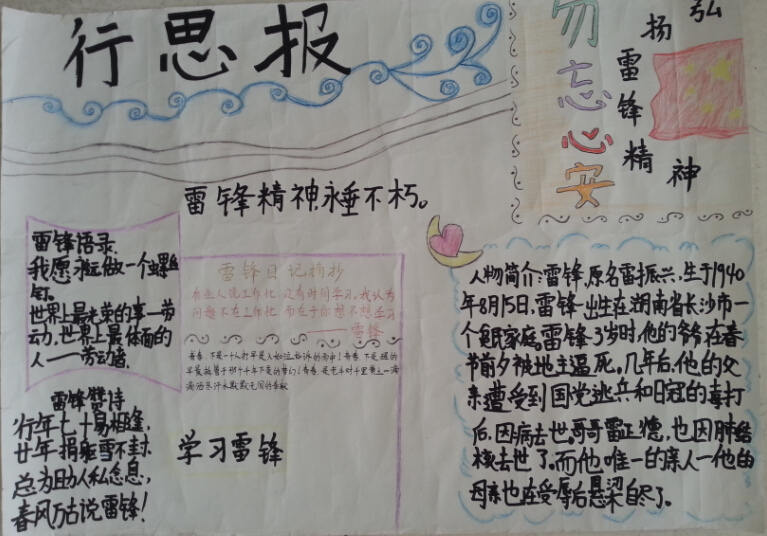 行思报
勿忘心安
弘
扬
雷
锋
精
神
雷锋精神永垂不朽。
雷锋语录
我愿永远做一个螺丝
钉。
世界上最光荣的事—劳
动,世界上最体面的
人——劳动者
雷锋日记摘抄
有些人说工作忙 没有时间学习,我认为
问题不在工作忙 而在于你想不想学习
——雷锋
雷锋赞诗
行年七十易相逢,
廿年捐躯雪不封
总为助人私怠息,
春风万古说雷锋!
学习雷锋
人物简介:雷锋,原名雷振兴,生于1940
年8月15日,雷锋出生在湖南省长沙市一
个贫民家庭,雷锋3岁时,他的爷爷在春
节前夕被地主逼死,几年后,他的父
亲遭受到国党逃兵和日冠的毒打
后,因病去世。哥哥雷正德,也因肺结
核去世了,而他唯一的亲人—他的
母亲也在受辱后悬梁自尽了。